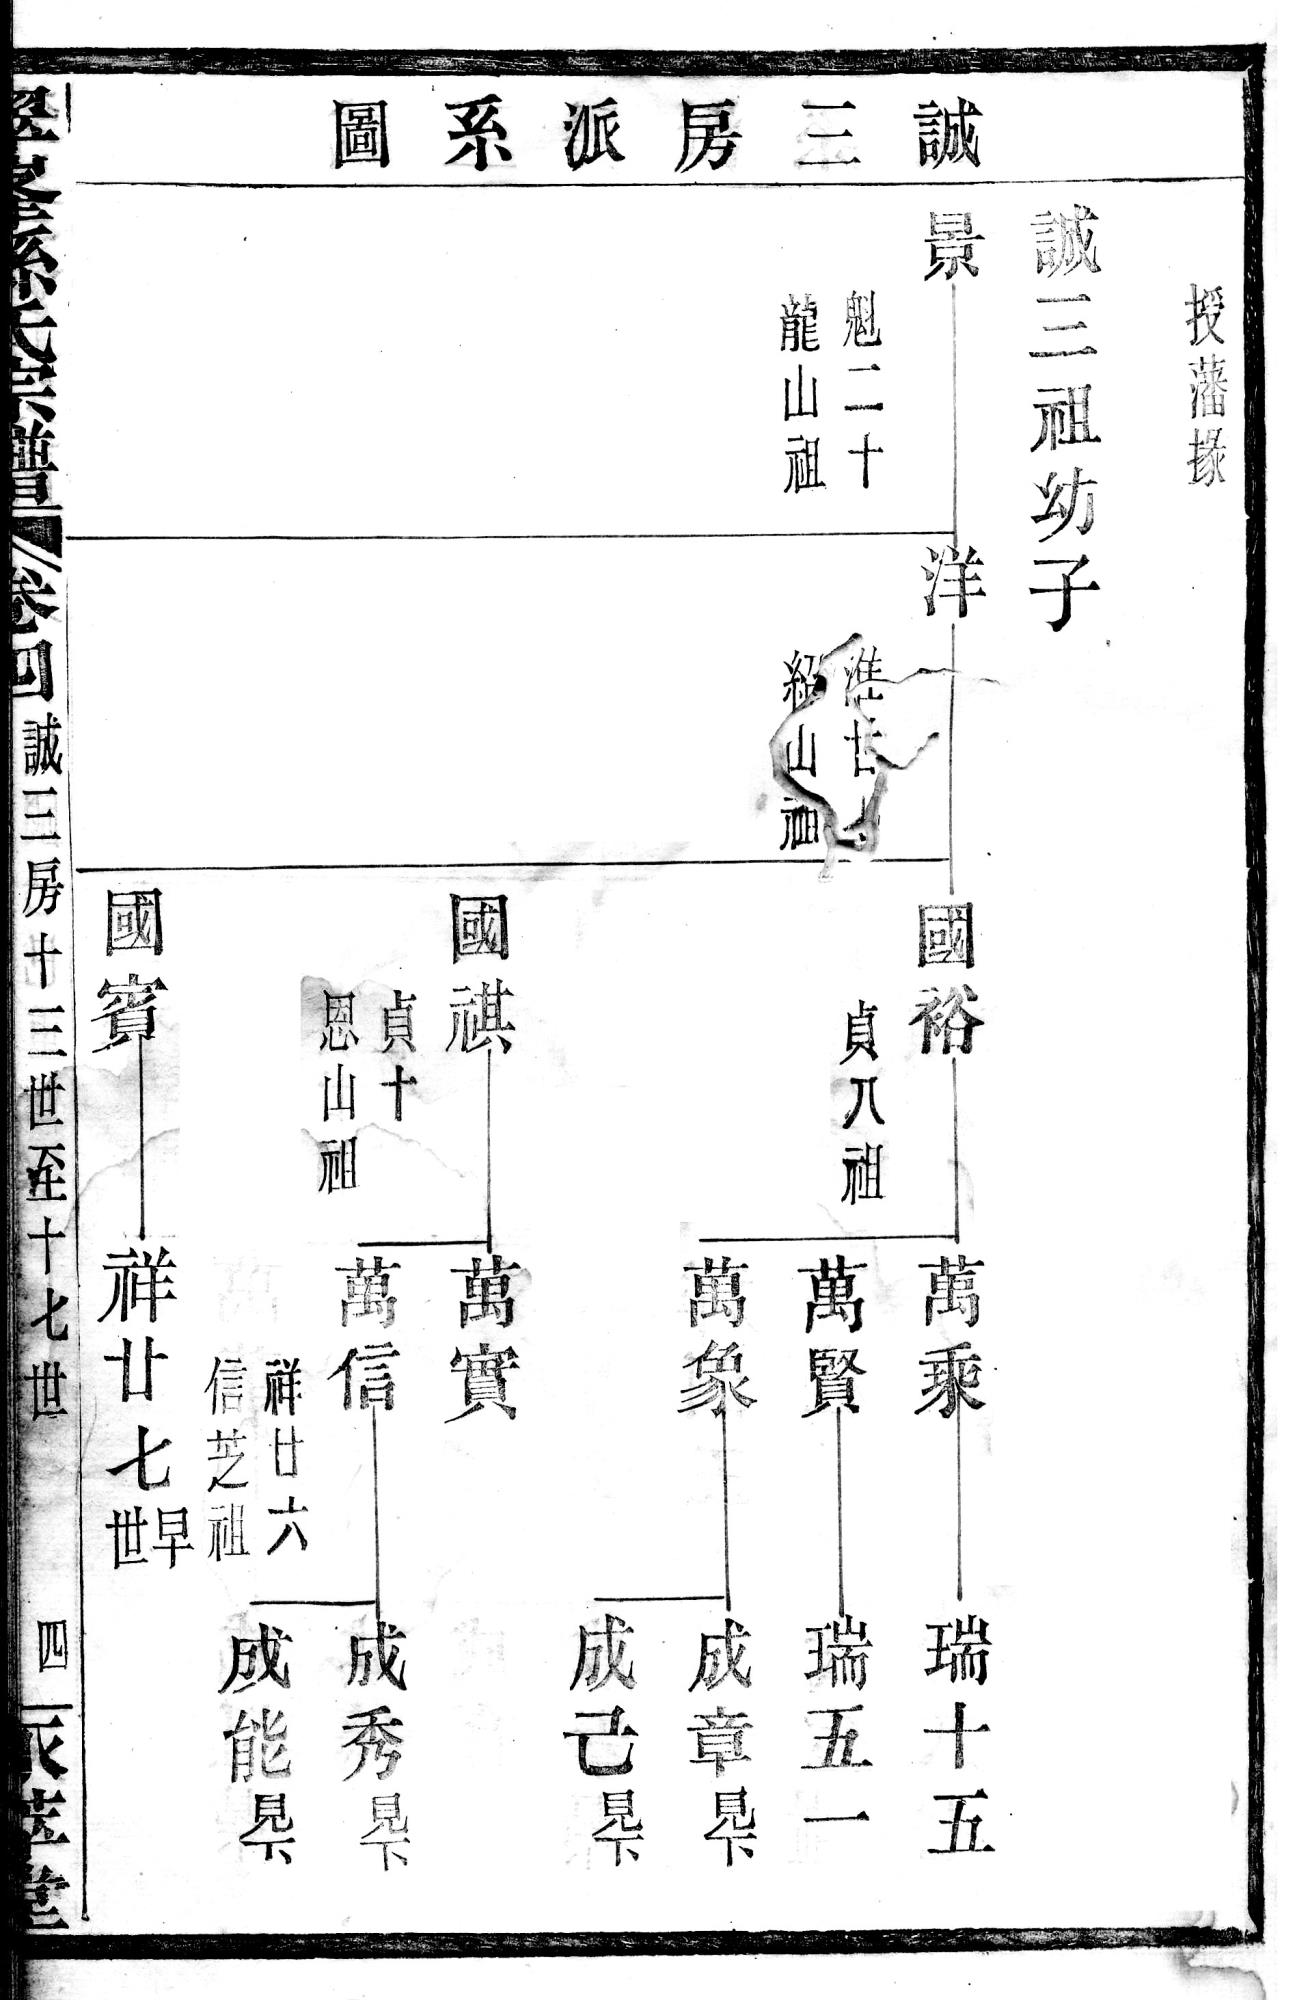 誠三房派系圖
授藩掾
誠三祖幼子
景
魁二十
龍山祖
洋
淮廿
紹山祖
國裕
貞八祖
國祺
貞十
恩山祖
國賓
萬乘
萬賢
萬象
萬實
萬信
祥廿六
信芝祖
祥廿七早世
瑞十五
瑞五一
成章見下
成己見下
成秀見下
成能見下
孫氏宗譜 卷四
誠三房十三世至十七世
四
堂